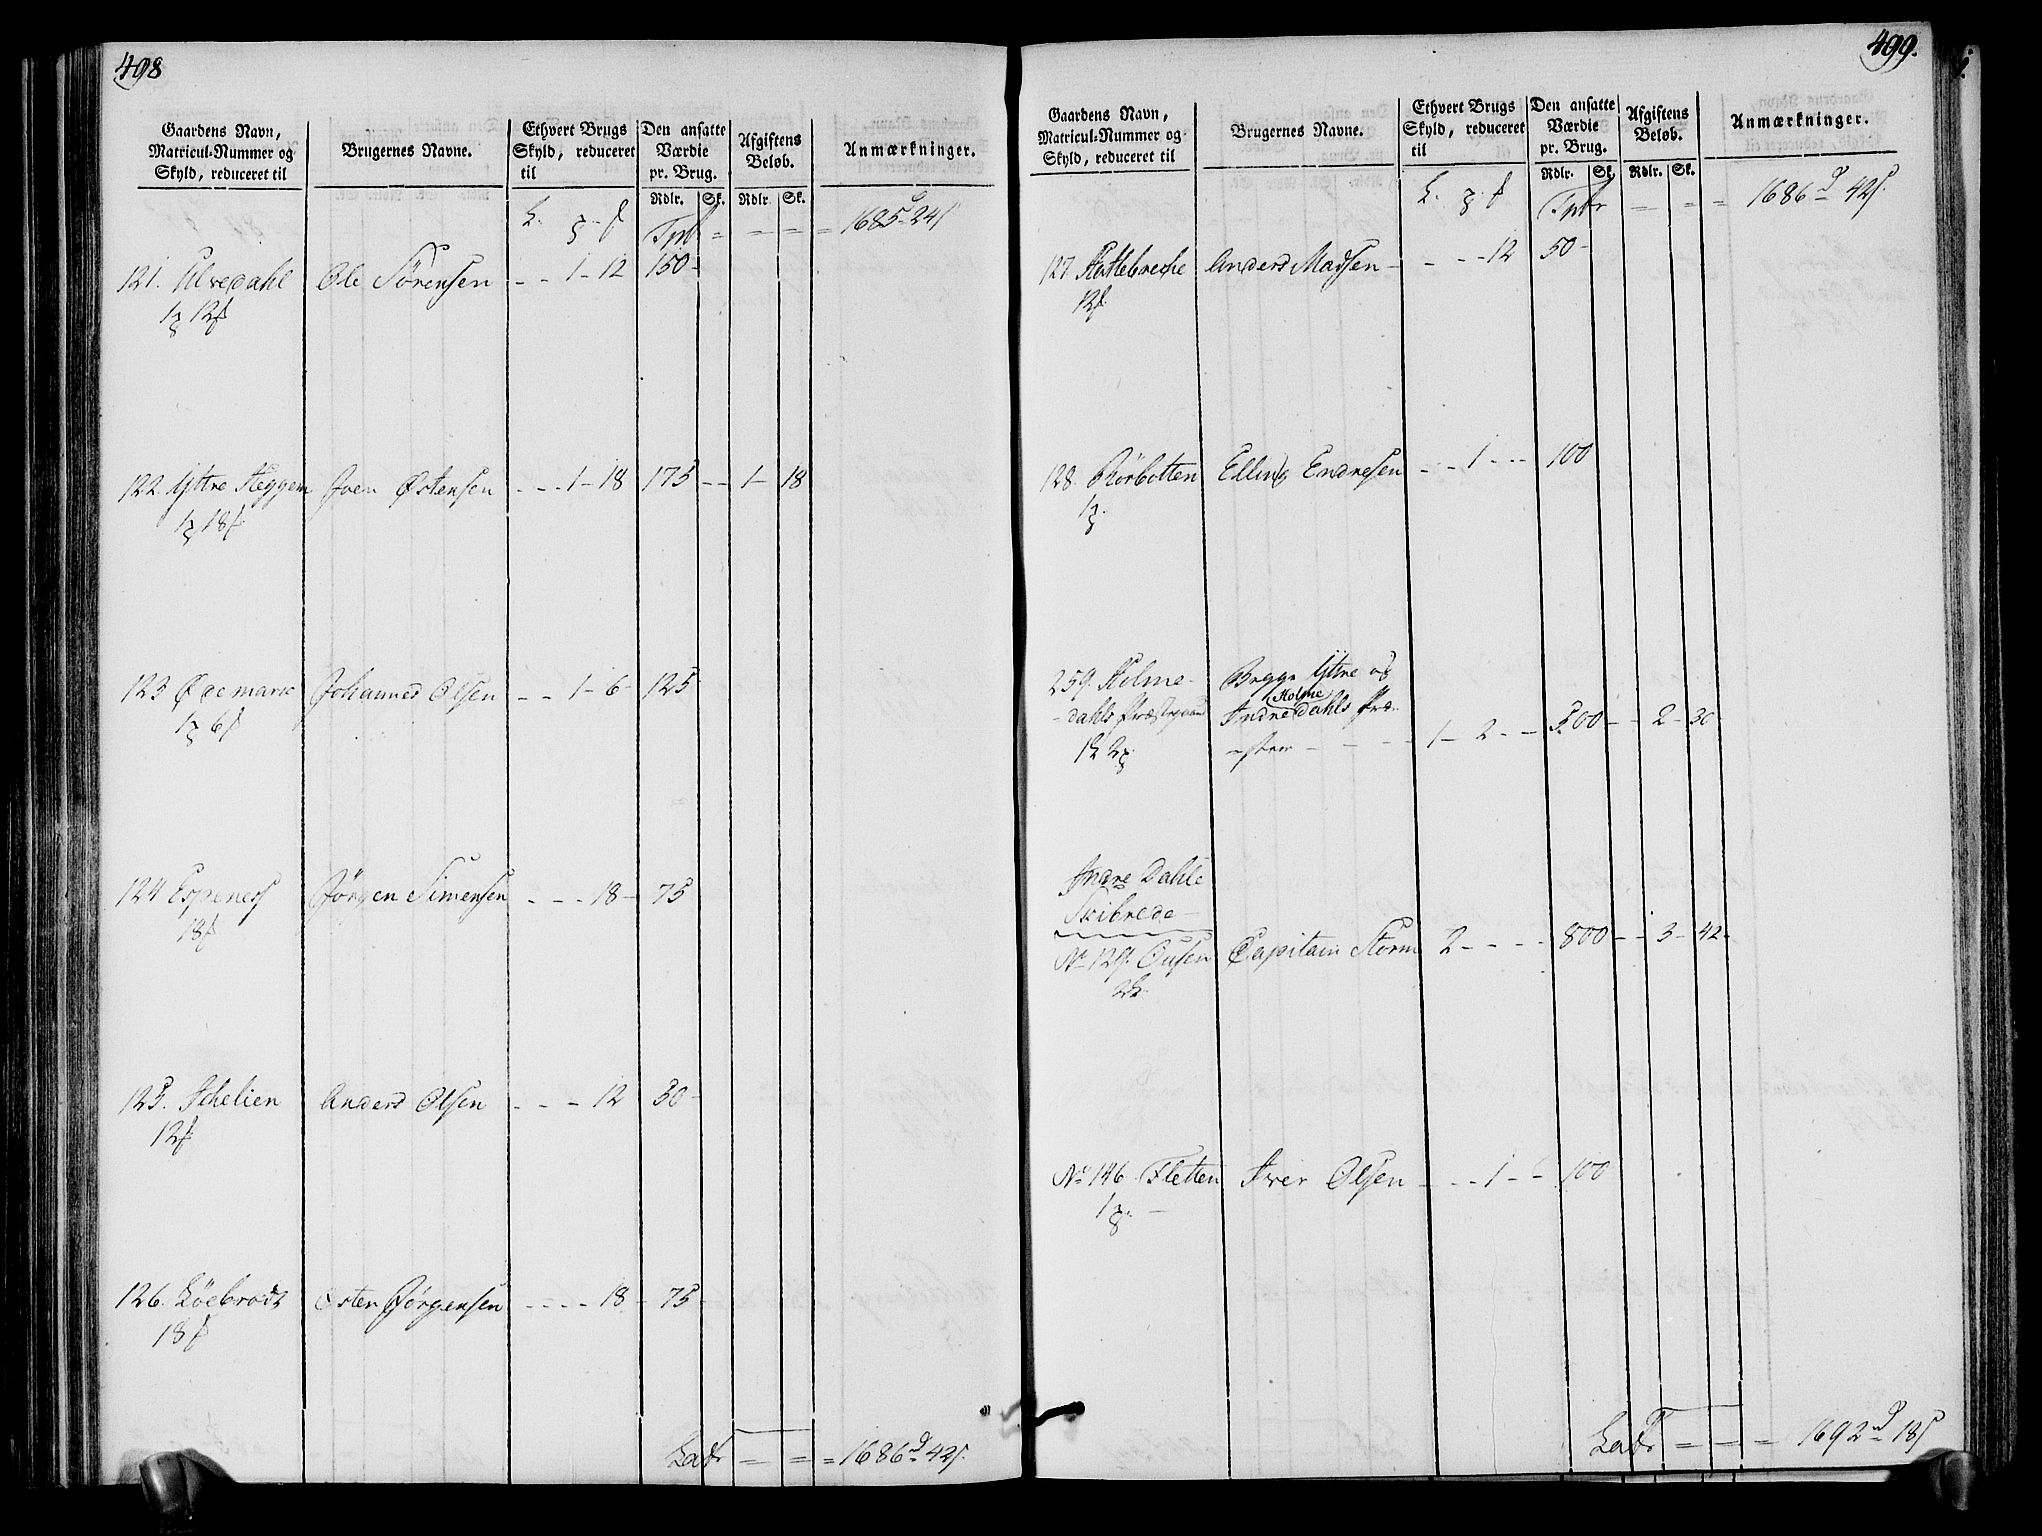 498
Gaardens Navn, Matricul-Nummer og Skyld, reduceret til
Brugernes Navne.
Ethvert Brugs Skyld, reduceret til
Den ansatte Værdie pr. Brug.
Afgiftens Beløb.
Anmærkninger.
Rdlr. Sk. Rdlr. Sk.
Tpt = = = = 1685 24
121. Ulvedahl Ole Sörensen - - 1 - 12 150 -
122. Yttre Heggem Joen Østensen - - - 1 - 18 175 - - 1 - 18
123 Øremark Johannes Olsen - - 1 - 6 - 125
124 Espenes Jörgen Simensen - - - 18 - 75
125. Schelien Anders Olsen - - - 12 30 -
12
126. Löebrode Østen Jörgensen - - - - 18 - 75 -
Latr = = = 1686 42
499.
Gaardens Navn, Matricul-Nummer og Skyld, reduceret til
Brugernes Navne.
Ethvert Brugs Skyld, reduceret til
Den ansatte Værdie pr. Brug.
Afgiftens Beløb.
Anmærkninger.
Rdlr. Sk. Rdlr. Sk.
Tptr = = = 1686 42
127 Anders Madsen - - - - 12 50 -
128. Rörbotten Elling Endresen - - - 1 - - - 100
259. Holme-
dahls Præstegaard
Begge Yttre og
Indre Holme dahls Præ-
- - - - 1 - 2 - - 500 - - 2 - 30
Indre Dahls
Skibrede
No 129. Ousen Capitain Storm 2 - - - - 800 - - 3 - 42 -
No 146 Fletten Iver Olsen - - - - 1 - - 100
Latr = = = 1692 18